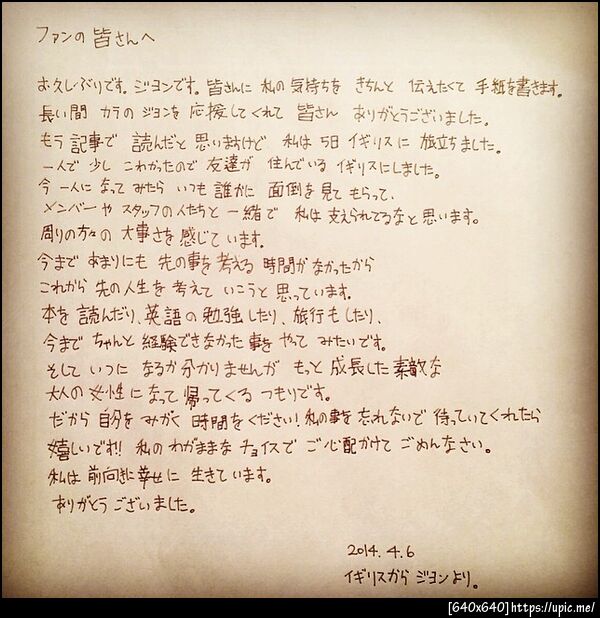 ファンの 皆さんへ
お久しぶりです。ジヨンです。皆さんに 私の 気持ちを きちんと 伝えたくて 手紙を書きます。
長い間 カラの ジヨンを 応援してくれて 皆さん ありがとうございました。
もう 記事で 読んだと 思いますけど 私は 5日 イギリスに 旅立ちました。
一人で 少し こわかったので 友達が 住んでいる イギリスにしました。
今 一人に なって みたら いつも 誰かに 面倒を 見て もらって、
メンバーや スタッフの 人たちと 一緒で 私は 支えられてるなと 思います。
周りの方々の 大事さを 感じています。
今まで あまりにも 先の事を 考える 時間が なかったから
これから 先の人生を 考えて いこうと 思っています。
本を 読んだり、英語の 勉強したり、旅行もしたり、
今まで ちゃんと 経験できなかった 事を やって みたいです。
そして いつに なるか 分かりませんが もっと 成長した 素敵な
大人の 女性に なって 帰ってくる つもりです。
だから 自分を みがく 時間を ください! 私の事を 忘れないで 待っていてくれたら
嬉しいです!! 私の わがままな チョイスで ご心配かけて ごめんなさい。
私は 前向きに 幸せに 生きています。
ありがとう ございました。
2014. 4. 6
イギリスから ジヨンより。
[640x640] https://upic.me/